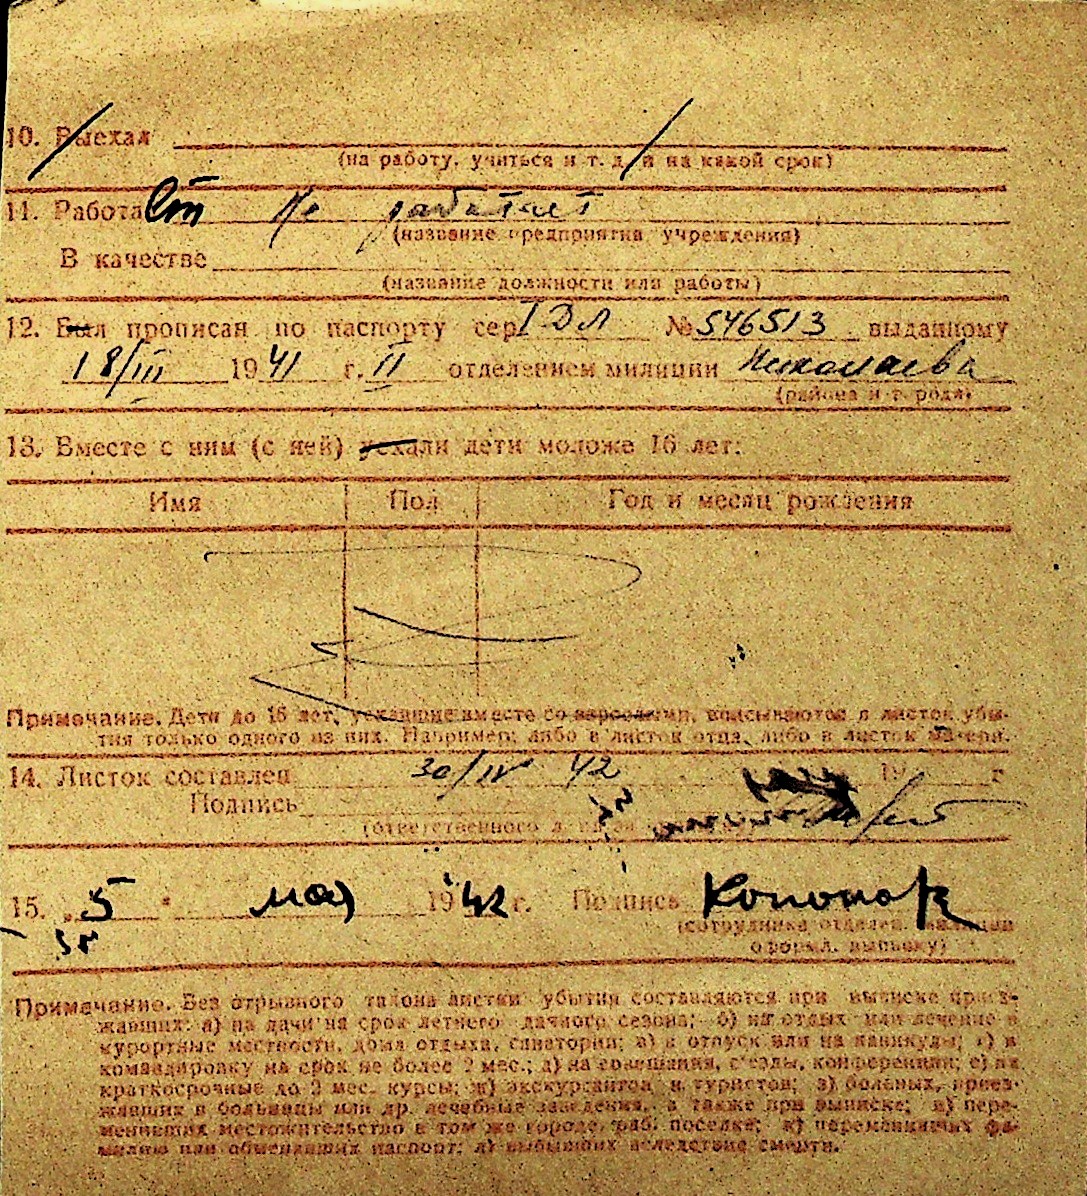 10. Выехал
(на работу, учиться и т. д. и на какой срок)
11. Работает Не работает
(название предприятия учреждения)
В качестве
(название должности или работы)
12. Был прописан по паспорту сер. I ДЛ № 546513 выданному
18/III 1941 г. II отделением милиции Николаева
(района и города)
13. Вместе с ним (с ней) уехали дети моложе 16 лет:
Имя Пол Год и месяц рождения
Примечание. Дети до 16 лет, уехавшие вместе со взрослыми, вписываются в листок убы-
тия только одного из них. Например: либо в листок отца, либо в листок матери.
14. Листок составлен 30/IV 42 19 г
Подпись
(ответственного
15. „5" мая 1942 г. Подпись
(сотрудника отделен. милиции
оформл. выписку)
Примечание. Без отрывного талона листки убытия составляются при выписке приез-
жавших: а) на дачи на срок летнего дачного сезона; б) на отдых или лечение в
курортные местности, дома отдыха, санатории; в) в отпуск или на каникулы; г) в
командировку на срок не более 2 мес.; д) на совещания, с'езды, конференции; е) на
краткосрочные до 2 мес. курсы; ж) экскурсантов и туристов; з) больных, приез-
жавших в больницы или др. лечебные заведения, а также при выписке; и) пере-
менивших местожительство в том же городе, раб. поселке; к) переменивших фа-
милию или обменявших паспорт; л) выбывших вследствие смерти.